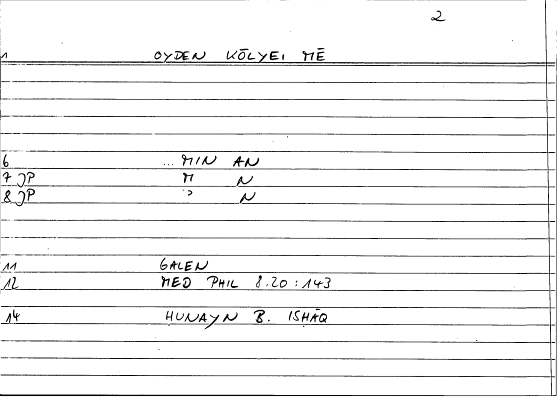 2
1 OYDEN KŌLYEI MĒ
6 ... MIN AN
7 JP M N
8 JP N
11 GALEN
12 MED PHIL 8.20:143
14 HUNAYN B. ISHĀQ